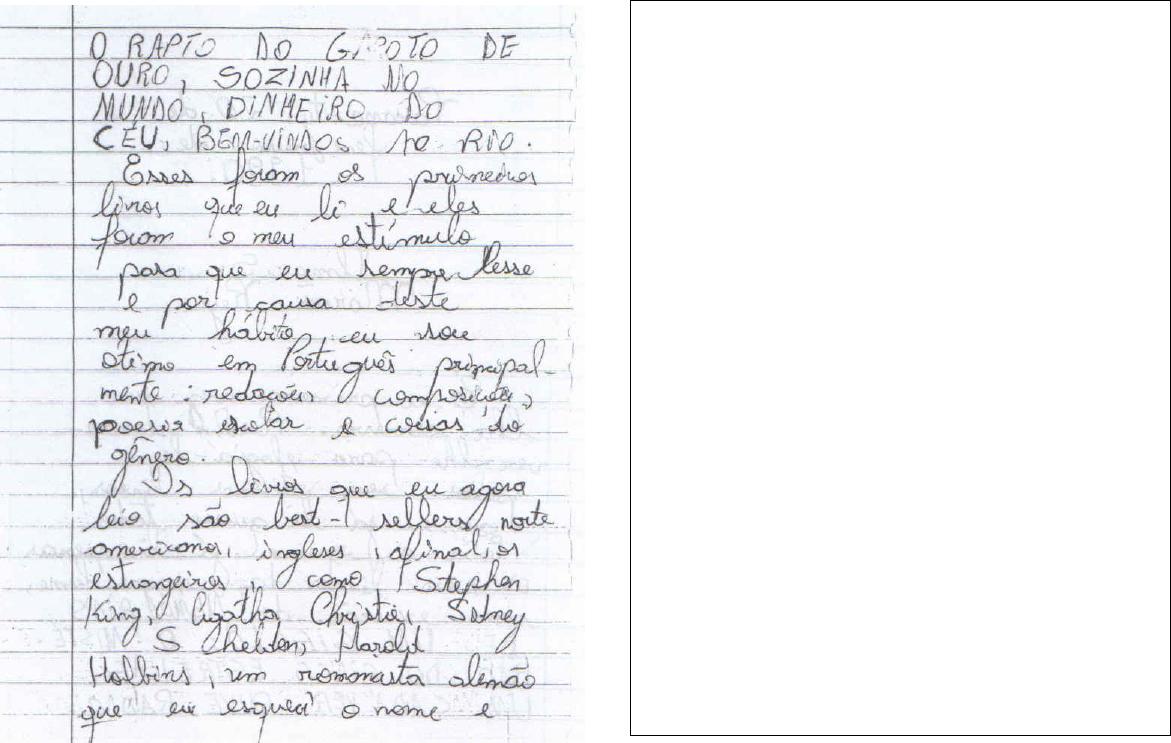 O RAPTO DO GAROTO DE
OURO, SOZINHA NO
MUNDO, DINHEIRO DO
CÉU, BEM-VINDOS AO RIO.
Esses foram os primeiros
livros que eu li e eles
foram o meu estímulo
para que eu sempre lesse
e por causa deste
meu hábito eu sou
otimo em Português principal-
mente: redações, composições,
poesia escolar e coisas do
gênero.
Os livros que eu agora
leio são best-sellers norte
americanos, ingleses, afinal, os
estrangeiros, como Stephen
King, Agatha Christie, Sidney
Sheldon, Harold
Holbins, um romancista alemão
que eu esqueci o nome e